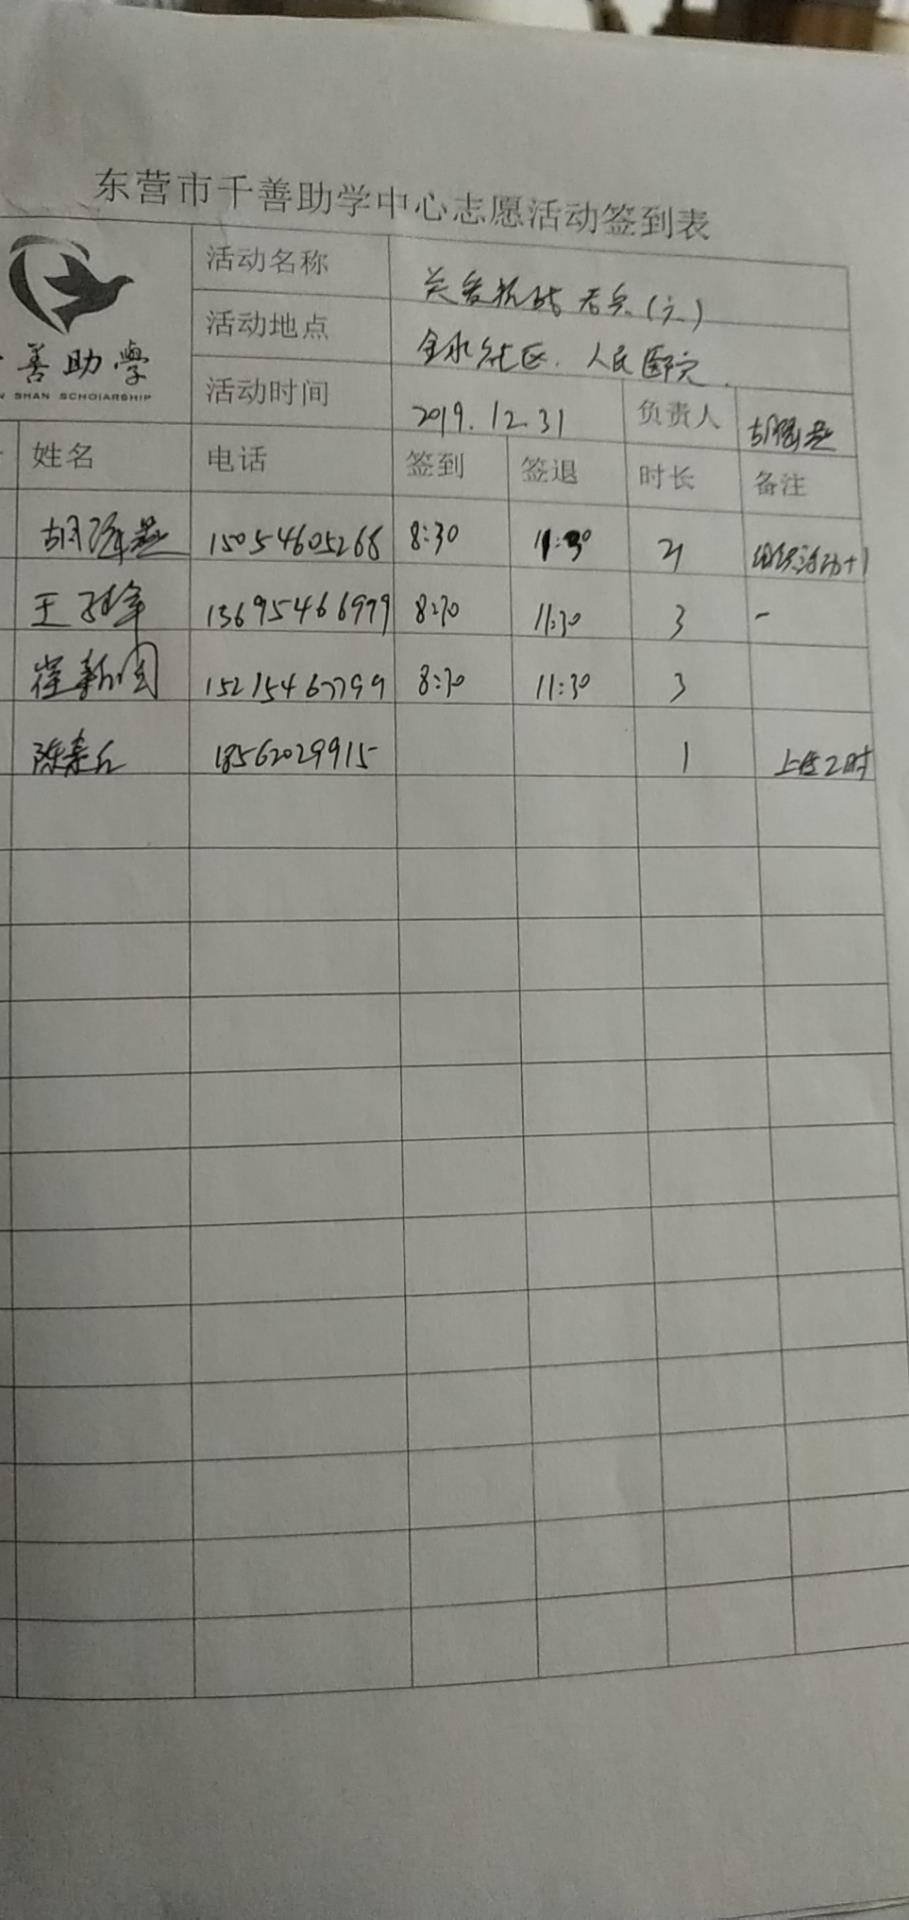 东营市千善助学中心志愿活动签到表
善助學
SHAN SCHOIARSHIP
活动名称 关爱抗战老兵(六)
活动地点 金水社区. 人民医院.
活动时间 2019.12.31 负责人
姓名 电话 签到 签退 时长 备注
15054605268 8:30 11:30 4 组织活动+1
王 13695466979 8:30 11:30 3 -
崔新国 15215467799 8:30 11:30 3
陈 18562029915 1 上传2时